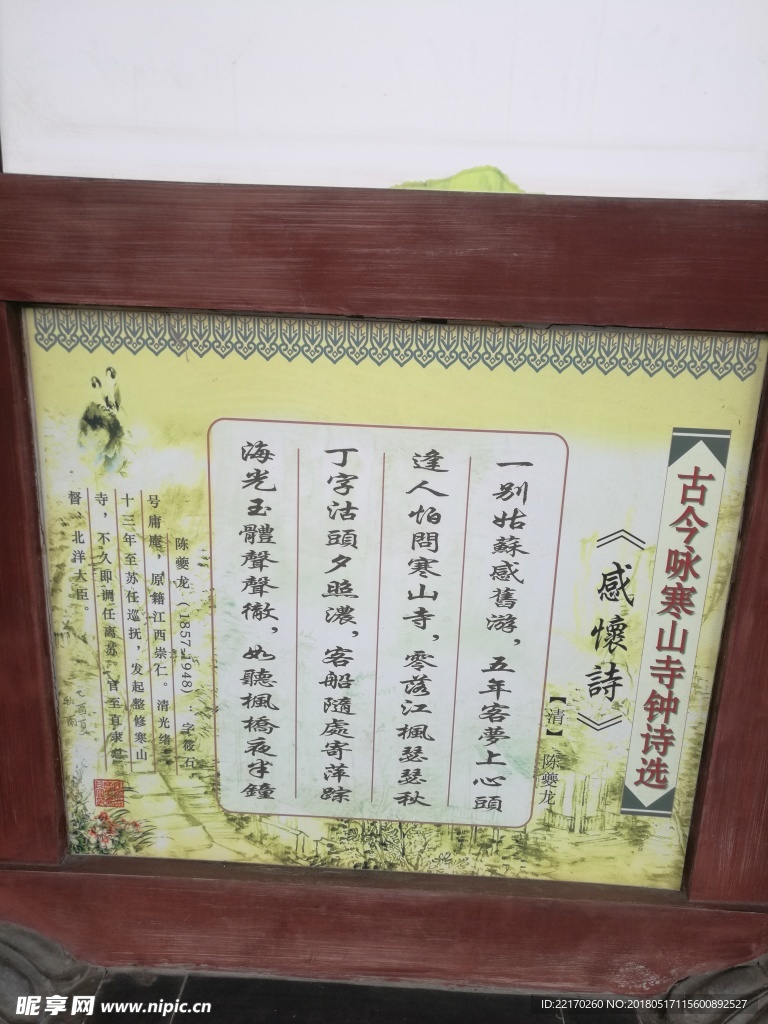 古今咏寒山寺钟诗选
《感懷詩》
【清】 陈夔龙
一别姑蘇感舊游，五年客夢上心頭
逢人怕問寒山寺，零落江楓瑟瑟秋
丁字沽頭夕照濃，客船隨處寄萍踪
海光玉體聲聲徹，如聽楓橋夜半鐘
陈夔龙（1857-1948）：字筱石
号庸庵，原籍江西崇仁。清光绪三
十三年至苏任巡抚，发起整修寒山
寺，不久即调任离苏。官至直隶总
督、北洋大臣。
昵享网 www.nipic.cn
ID:22170260 NO:20180517115600892527